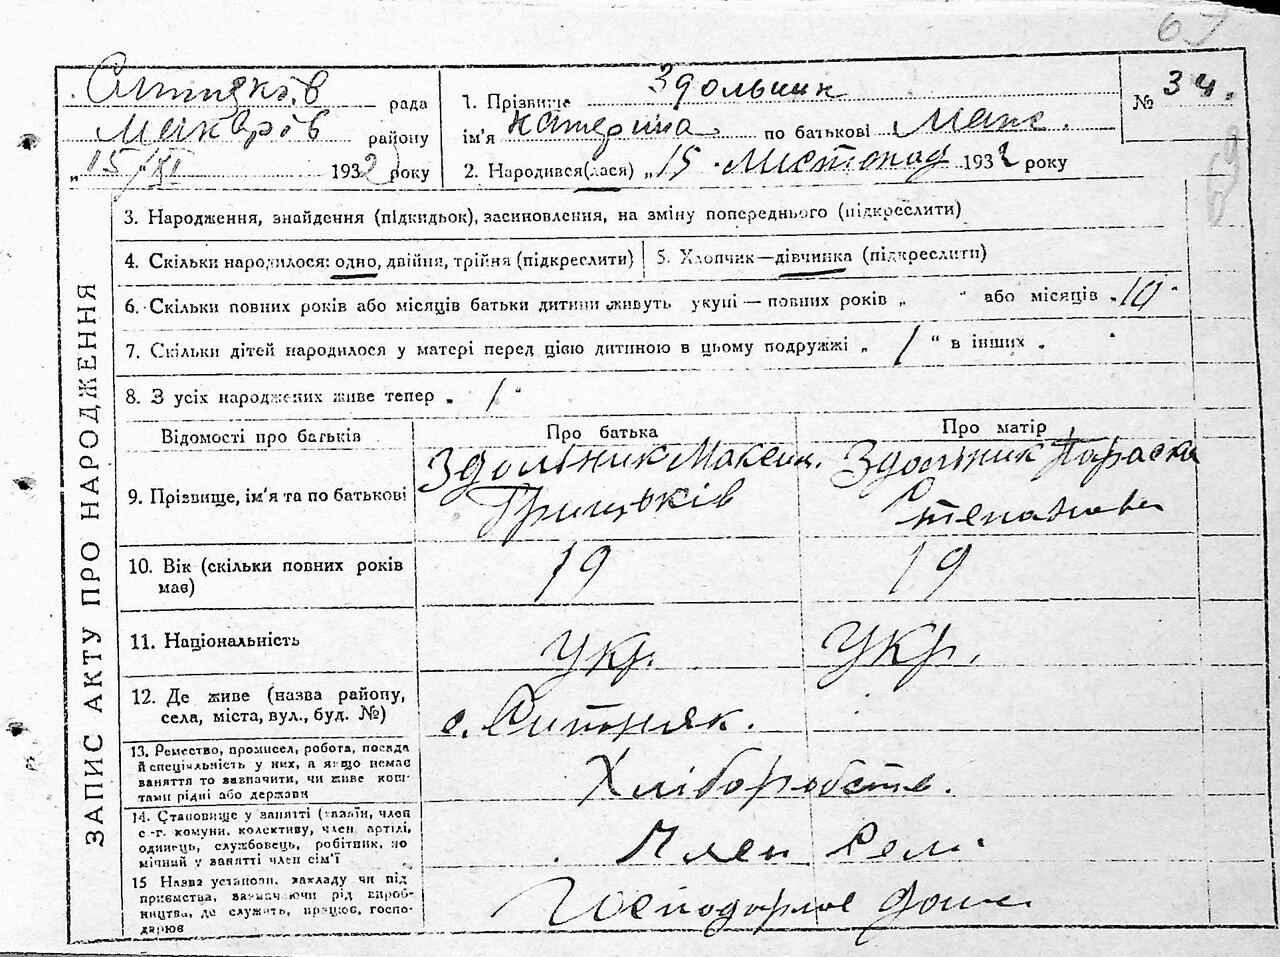 67
Ситняків рада
Макарів району
„15/XI 1932 року
1. Прізвище Здольник
ім'я Катерина по батькові Макс.
2. Народився(лася) „15 Листопад 1932 року
№ 34.
ЗАПИС АКТУ ПРО НАРОДЖЕННЯ
3. Народження, знайдення (підкидьок), засиновлення, на зміну попереднього (підкреслити)
4. Скільки народилося: одно, двійня, трійня (підкреслити)
5. Хлопчик—дівчинка (підкреслити)
6. Скільки повних років або місяців батьки дитини живуть укупі — повних років „ “ або місяців „10“
7. Скільки дітей народилося у матері перед цією дитиною в цьому подружжі „ 1 “ в інших „
8. З усіх народжених живе тепер „ 1 “
Відомості про батьків
Про батька
Про матір
9. Прізвище, ім'я та по батькові
Здольник Максим.
Грицьків
Здольник Параска
Степанова
10. Вік (скільки повних років
має)
19
19
11. Національність
Укр.
Укр.
12. Де живе (назва району,
села, міста, вул., буд. №)
с. Ситняк.
13. Ремество, промисел, робота, посада
й спеціяльність у них, а якщо немає
заняття то зазначити, чи живе кош-
тами рідні або держави
Хліборобств.
14. Становище у занятті (хазяїн, член
с.-г. комуни, колективу, член артілі,
одинець, службовець, робітник, по
мічний у занятті член сім'ї
Член Сем.
15 Назва установи, закладу чи під
приємства, зазначаючи рід вироб-
ництва, де служить, працює, госпо-
дарює